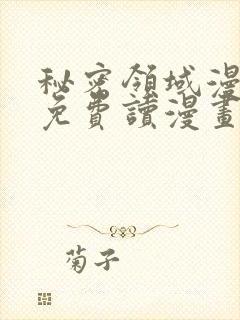 秘密領域漫
免費讀漫畫
菊子